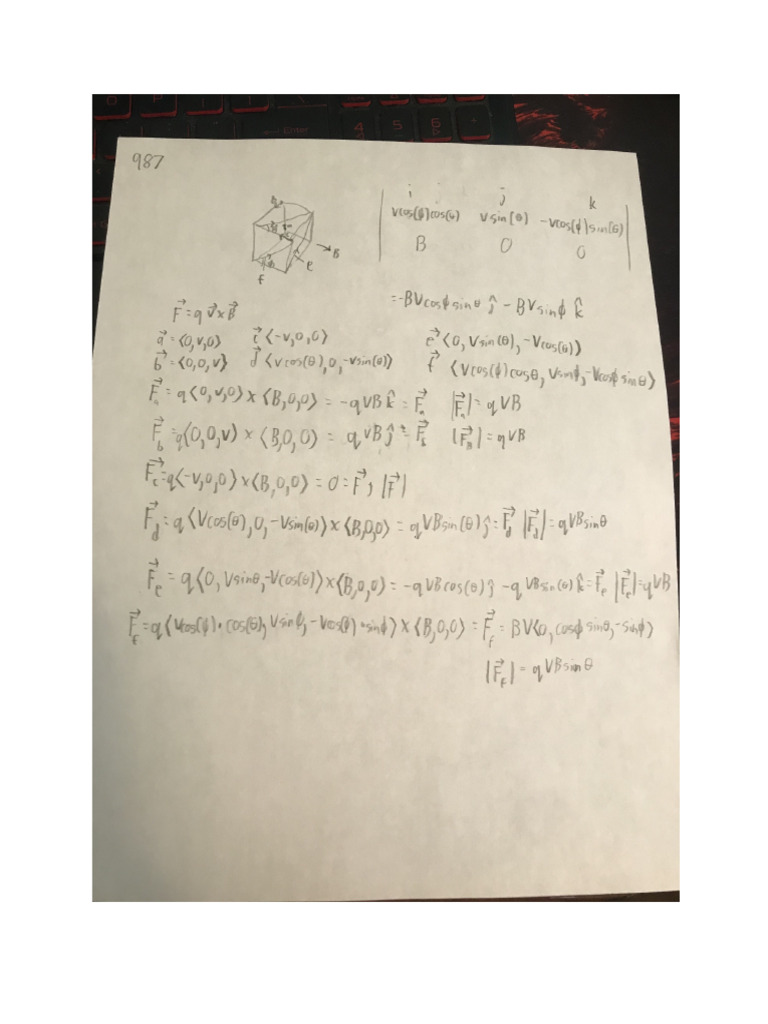 987
i j k
vcos(ϕ)cos(θ) vsin(θ) -vcos(ϕ)sin(θ)
B 0 0
B
e
f
F⃗ = q v⃗ x B⃗
= -BVcosϕsinθ ĵ - BVsinϕ k̂
a⃗ = <0,v,0> c⃗ <-v,0,0> e⃗ <0, Vsin(θ), -Vcos(θ)>
b⃗ = <0,0,v> d⃗ <vcos(θ),0,-vsin(θ)> f⃗ <Vcos(ϕ)cosθ, Vsinϕ, -Vcosϕsinθ>
F⃗ₐ = q<0,v,0> x <B,0,0> = -qVB k̂ = F⃗ₐ |F⃗ₐ| = qVB
F⃗_b = q<0,0,v> x <B,0,0> = qVB ĵ = F⃗_b |F⃗_B| = qVB
F⃗_c = q<-v,0,0> x <B,0,0> = 0 = F⃗, |F⃗|
F⃗_d = q<Vcos(θ),0,-Vsin(θ)> x <B,0,0> = qVBsin(θ) ĵ = F⃗_d |F⃗_d| = qVBsinθ
F⃗_e = q<0,Vsinθ,-Vcos(θ)> x <B,0,0> = -qVBcos(θ) ĵ -qVBsin(θ) k̂ = F⃗_e |F⃗_e| = qVB
F⃗_f = q<Vcos(ϕ)·cos(θ), Vsinϕ, -Vcos(ϕ)·sinϕ> x <B,0,0> = F⃗_f = BV<0,cosϕsinθ,-sinϕ>
|F⃗_f| = qVBsinθ